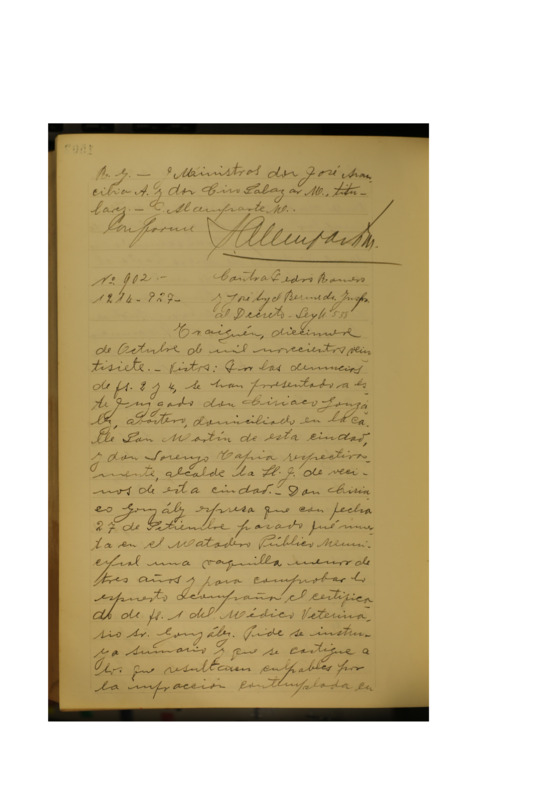 R. G. — Ministros don José Man-
cibia A. y don Ciro Salazar M., titu-
lares. — E. Alemparte M.
Conforme
No 902.-
1214-927-
Contra Pedro Romero
y José
al Decreto-Ley No
Traiguén, diecinueve
de Octubre de mil novecientos vein-
tisiete. - Vistos: Por las denuncias
de fs. 2 y 4, se han presentado a es-
te Juzgado don Ciriaco Gonzá-
lez, abastero, domiciliado en la ca-
lle San Martín de esta ciudad,
y don Lorenzo Tapia respectiva-
mente, alcalde la H. J. de veci-
nos de esta ciudad. - Don Ciria-
co González espresa que con fecha
27 de Setiembre pasado fué muer-
ta en el Matadero Público Muni-
cipal una vaquilla menor de
tres años y para comprobar lo
espuesto acompaña el certifica-
do de fs. 1 del Médico Veterina-
rio Sr. González. Pide se instru-
ya sumario y que se castigue a
los que resultasen culpables por
la infracción contemplada en